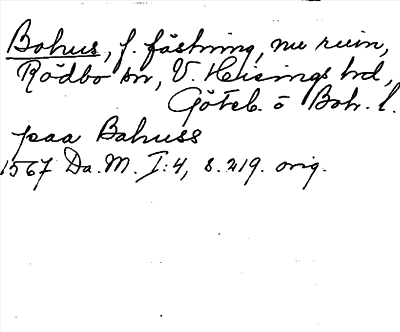 Bohus, f. fästning, nu ruin,
Rödbo sn, V. Hisings hd,
Göteb. o Boh. l.
paa Bahuss
1567 Da. M. I:4, s. 219. orig.